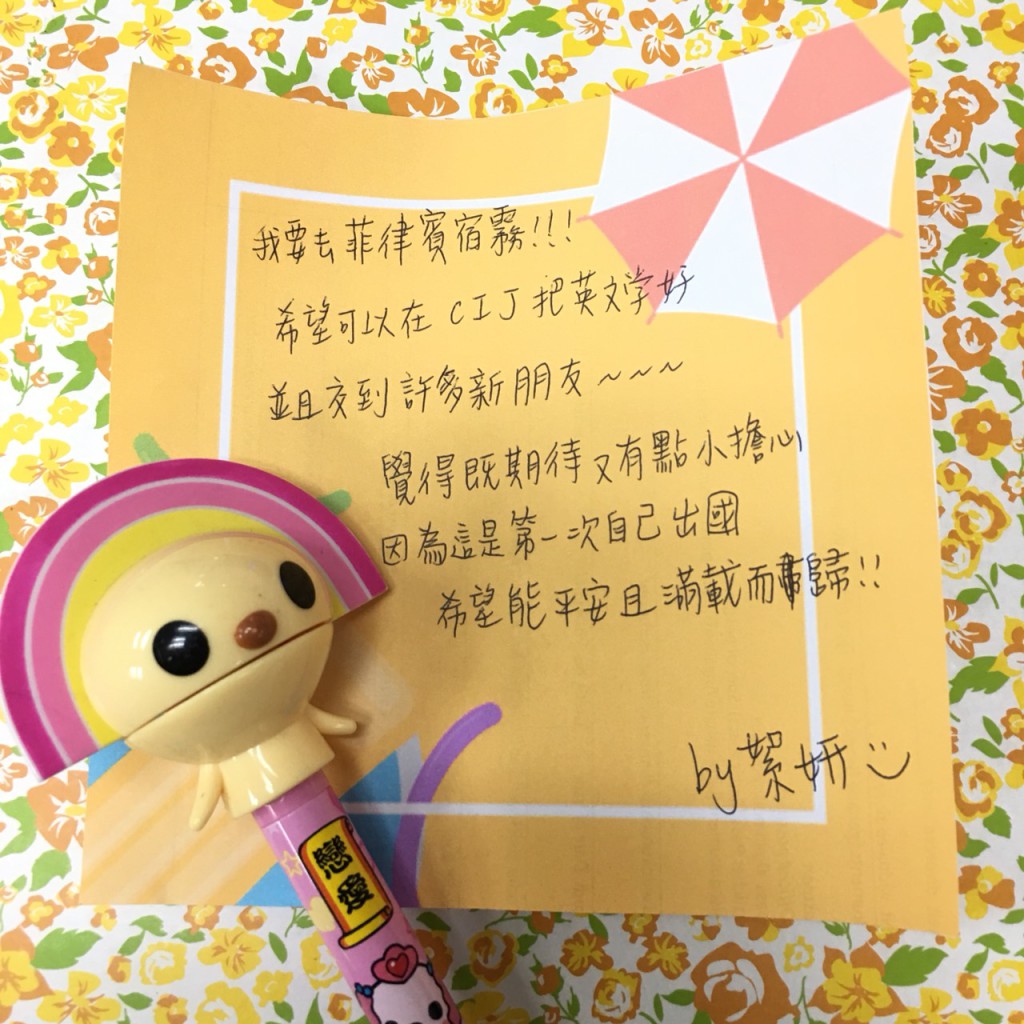 我要去菲律賓宿霧!!!
希望可以在 CIJ 把英文学好
並且交到許多新朋友~~~
覺得既期待又有點小擔心
因為這是第一次自己出國
希望能平安且滿載而歸!!
by 絮妍
戀愛